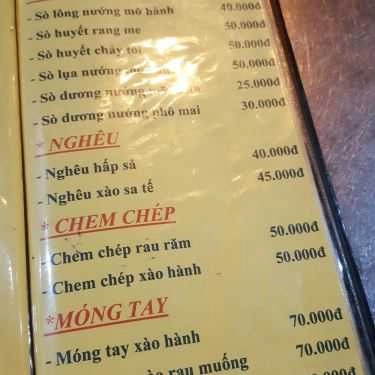 - Sò lông nướng mỡ hành 40.000đ
- Sò huyết rang me 50.000đ
- Sò huyết cháy tỏi 50.000đ
- Sò lụa nướng 50.000đ
- Sò dương nướng 25.000đ
- Sò dương nướng phô mai 30.000đ
* NGHÊU
- Nghêu hấp sả 40.000đ
- Nghêu xào sa tế 45.000đ
* CHEM CHÉP
- Chem chép rau răm 50.000đ
- Chem chép xào hành 50.000đ
*MÓNG TAY
- Móng tay xào hành 70.000đ
rau muống 70.000đ